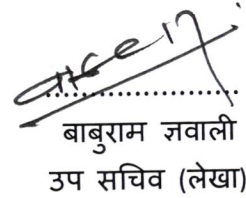 बाबुराम ज्ञवाली
उप सचिव (लेखा)